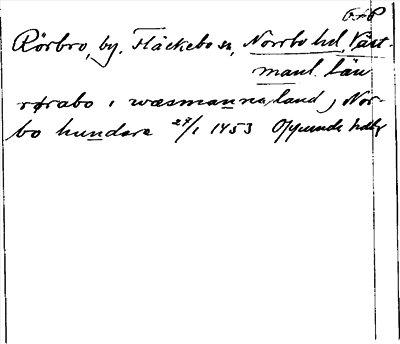 Rörbro, by, Fläckebo sn, Norrbo hd, Väst-
manl. län
rørabo i wæsmannaland, Nor-
bo hundare 27/1 1453